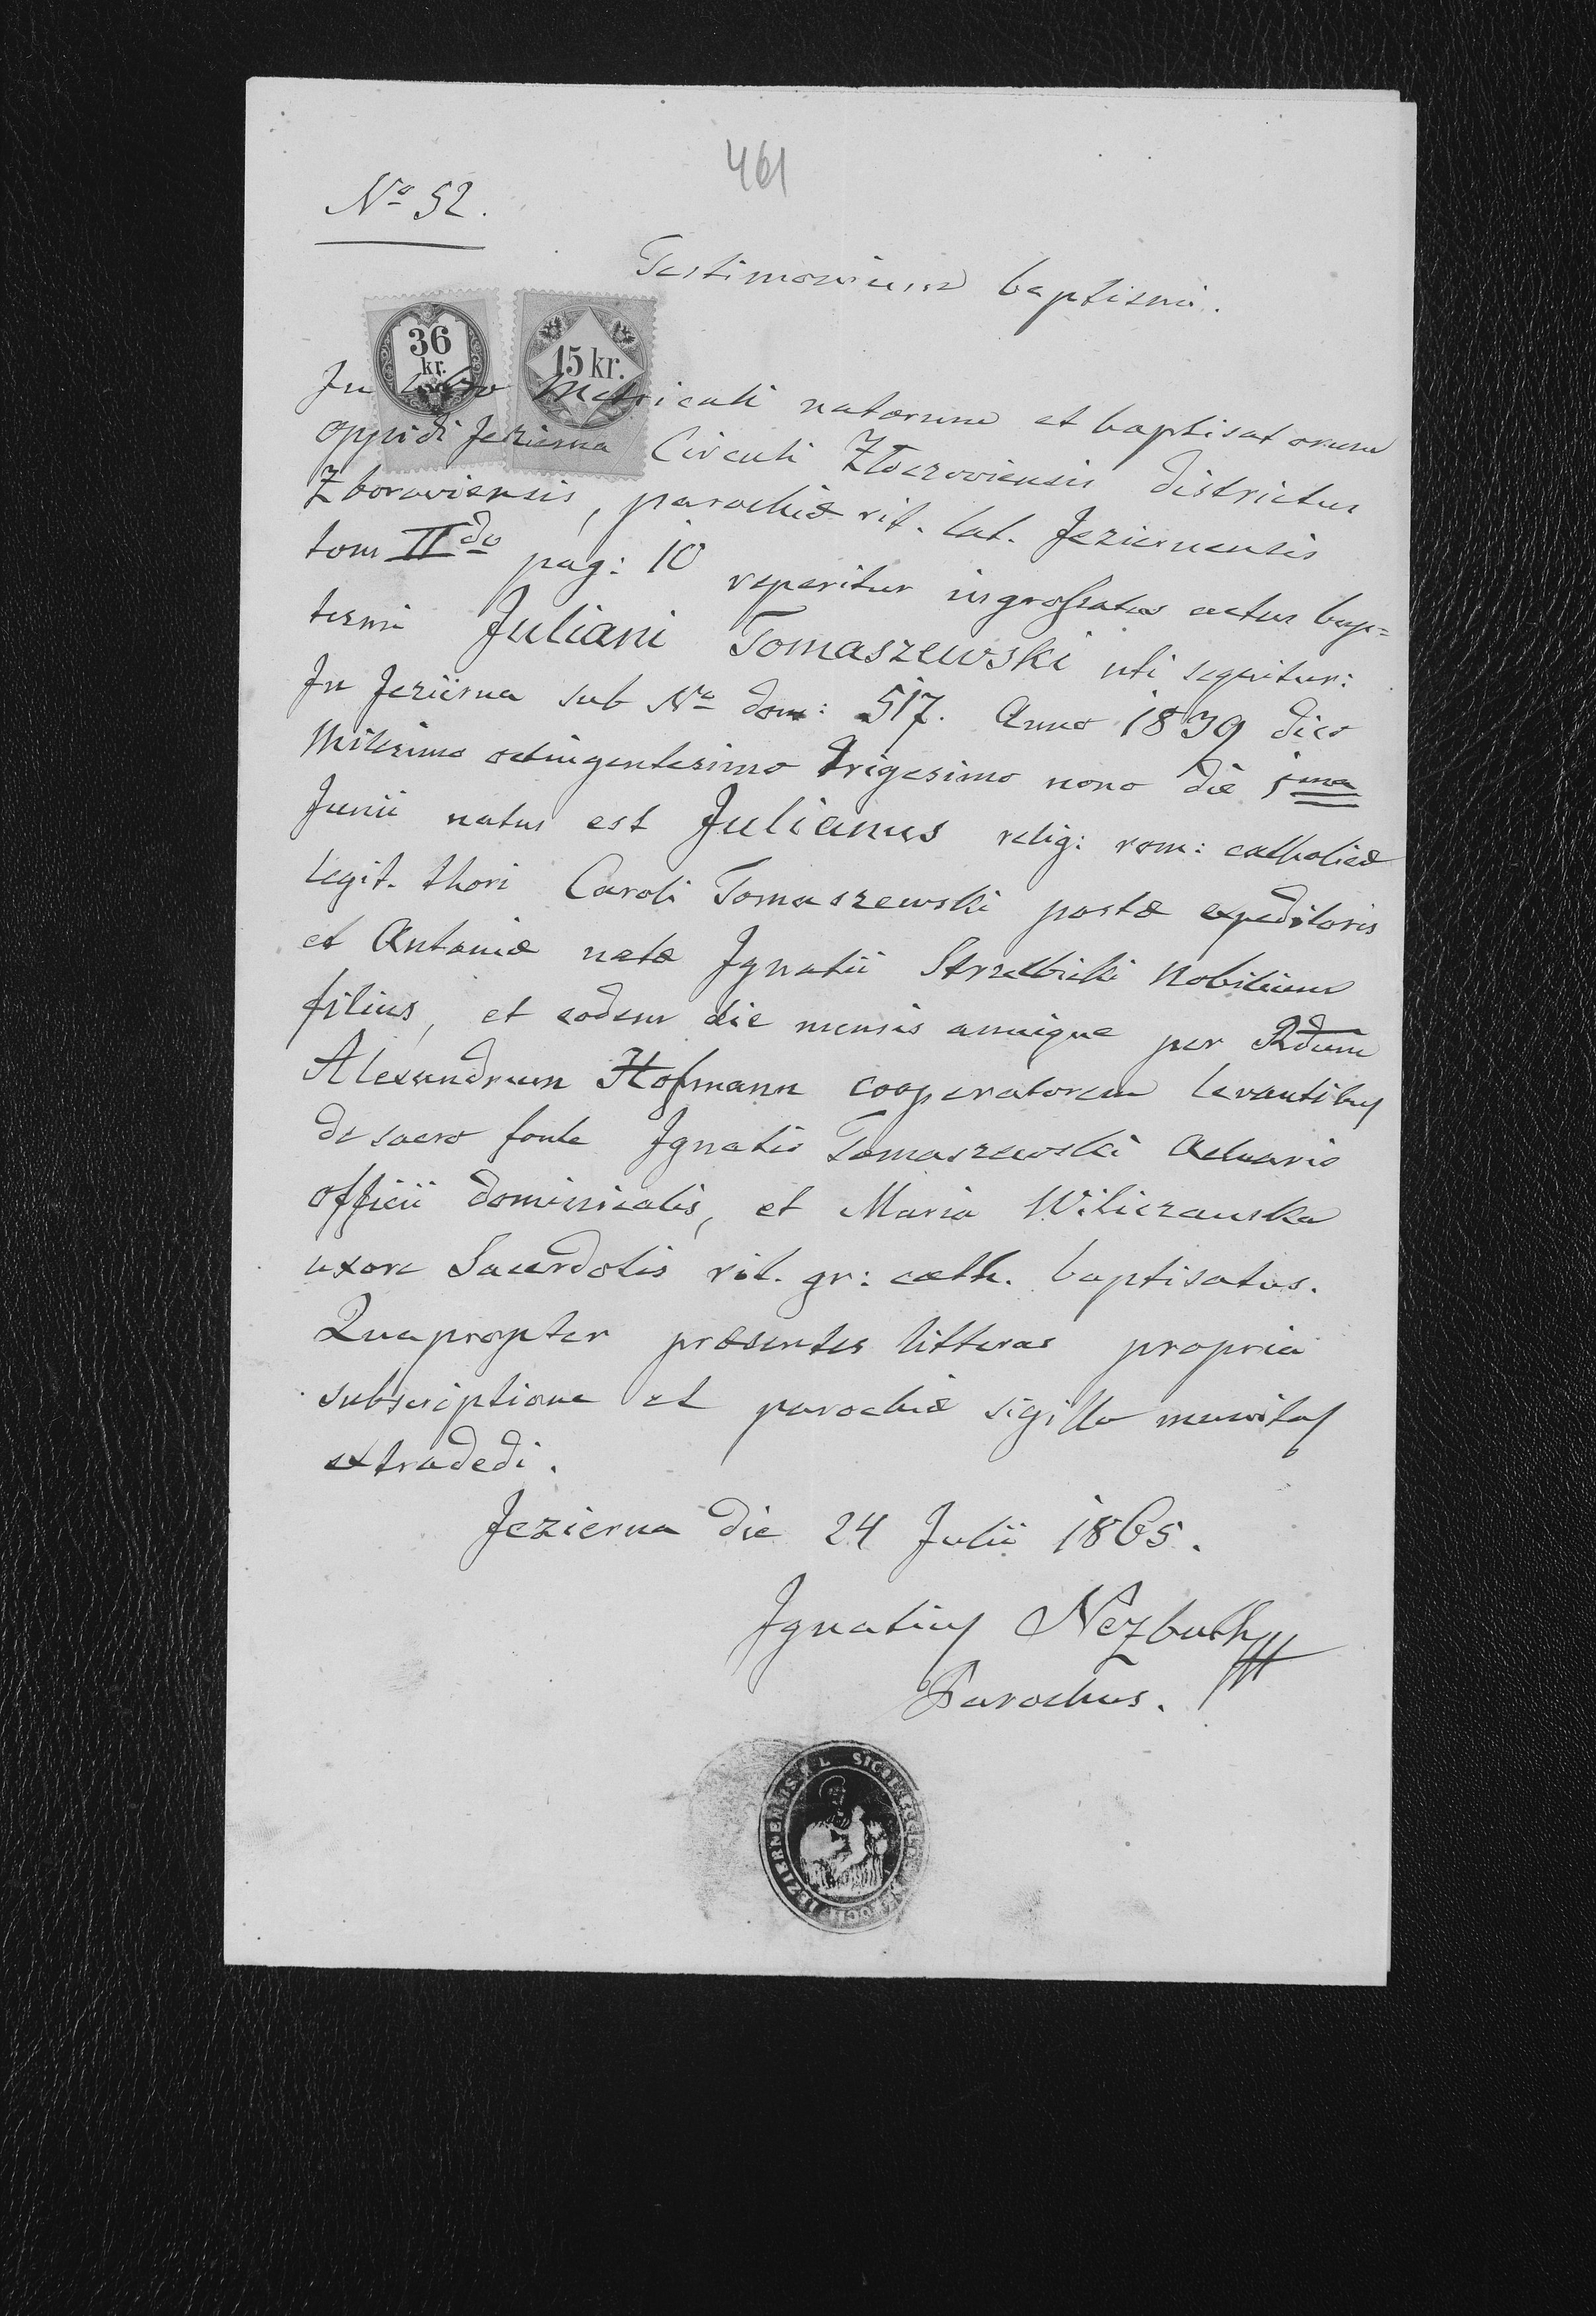 461
Nº 52.
Testimonium baptismi.
36
kr.
15 kr.
In Libro Metricali natorum et baptisatorum
oppidi Jezierna Circuli Złoczoviensis districtus
Zboroviensis, parochiæ rit. lat. Jeziernensis
tom II do pag: 10 reperitur ingrossatus actus bap=
tismi Juliani Tomaszewski uti sequitur:
In Jezierna sub Nº dom: 517. Anno 1839 dico
Milesimo octingentesimo trigesimo nono die 1ma
Junii natus est Julianus relig: rom: catholicæ
legit. thori Caroli Tomaszewski postæ expeditoris
et Antoniæ natæ Ignatii Strzelbicki Nobilium
filius, et eodem die mensis annique per Rdum
Alexandrum Hofmann cooperatorem levantibus
de sacro fonte Ignatio Tomaszewski Actuario
officii dominicalis, et Maria Wiliczanska
uxore Sacerdotis rit. gr: cath. baptisatus.
Quapropter præsentes litteras propria
subscriptione et parochiæ sigillo munitas
extradedi.
Jezierna die 24 Julii 1865.
Ignatius Nezbuth
Parochus.
JEZIERNENSIS R. L.